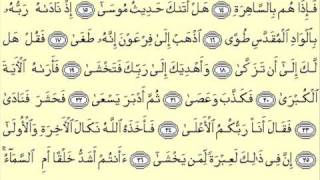 فَإِذَا هُم بِٱلسَّاهِرَةِ ١٤ هَلْ أَتَىٰكَ حَدِيثُ مُوسَىٰٓ ١٥ إِذْ نَادَىٰهُ رَبُّهُۥ
بِٱلْوَادِ ٱلْمُقَدَّسِ طُوًى ١٦ ٱذْهَبْ إِلَىٰ فِرْعَوْنَ إِنَّهُۥ طَغَىٰ ١٧ فَقُلْ هَل
لَّكَ إِلَىٰٓ أَن تَزَكَّىٰ ١٨ وَأَهْدِيَكَ إِلَىٰ رَبِّكَ فَتَخْشَىٰ ١٩ فَأَرَىٰهُ ٱلْءَايَةَ
ٱلْكُبْرَىٰ ٢٠ فَكَذَّبَ وَعَصَىٰ ٢١ ثُمَّ أَدْبَرَ يَسْعَىٰ ٢٢ فَحَشَرَ فَنَادَىٰ
٢٣ فَقَالَ أَنَا۠ رَبُّكُمُ ٱلْأَعْلَىٰ ٢٤ فَأَخَذَهُ ٱللَّهُ نَكَالَ ٱلْءَاخِرَةِ وَٱلْأُولَىٰٓ
٢٥ إِنَّ فِى ذَٰلِكَ لَعِبْرَةً لِّمَن يَخْشَىٰٓ ٢٦ ءَأَنتُمْ أَشَدُّ خَلْقًا أَمِ ٱلسَّمَآءُ ۚ